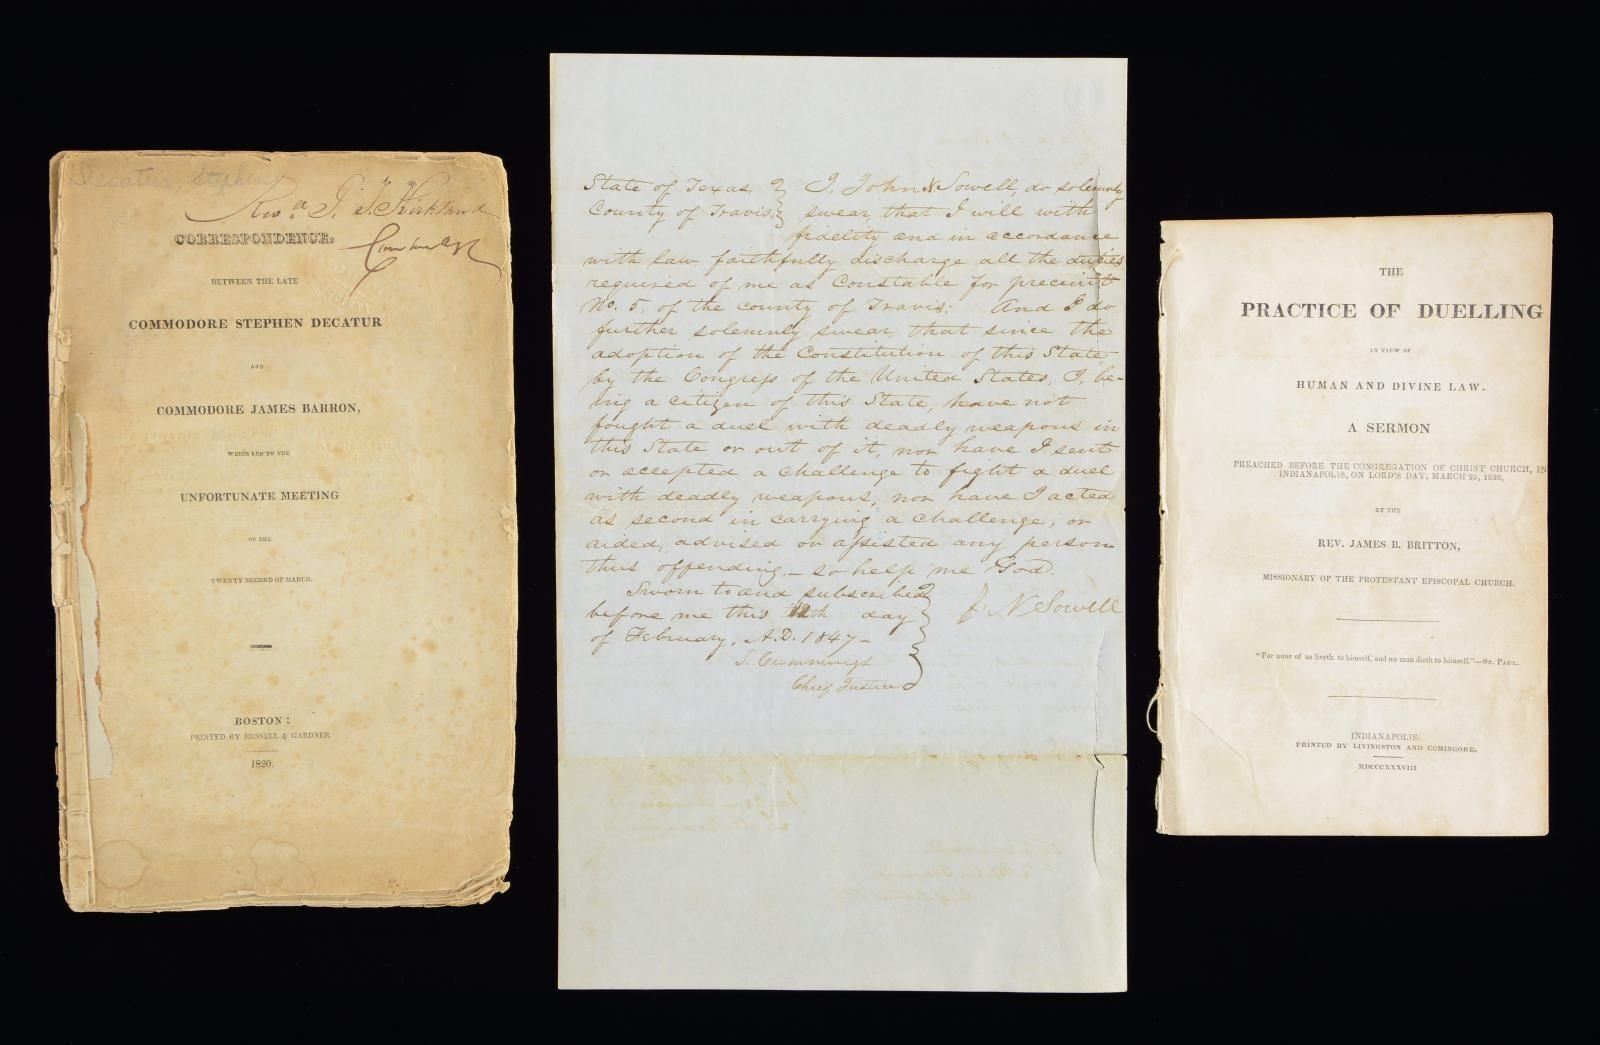 Decatur, Stephen
Revd. J. T. Kirkland
CORRESPONDENCE,
BETWEEN THE LATE
COMMODORE STEPHEN DECATUR
AND
COMMODORE JAMES BARRON,
WHICH LED TO THE
UNFORTUNATE MEETING
OF THE
TWENTY SECOND OF MARCH.
BOSTON:
PRINTED BY RUSSELL & GARDNER.
1820.
State of Texas, } I, John N Sowell, do solemnly
County of Travis. } swear, that I will with
fidelity and in accordance
with law, faithfully discharge all the duties
required of me as Constable for precinct
No. 5, of the county of Travis; And I do
further solemnly swear, that since the
adoption of the Constitution of this State
by the Congress of the United States, I, be-
ing a citizen of this State, have not
fought a duel with deadly weapons in
this State or out of it, nor have I sent
or accepted a challenge to fight a duel
with deadly weapons, nor have I acted
as second in carrying a challenge, or
aided, advised or assisted any person
thus offending,— so help me God.
Sworn to and subscribed
before me this 12th day
of February, A.D. 1847—
J. N Sowell
S. Cummings
Chief Justice
THE
PRACTICE OF DUELLING
IN VIEW OF
HUMAN AND DIVINE LAW.
A SERMON
PREACHED BEFORE THE CONGREGATION OF CHRIST CHURCH, IN
INDIANAPOLIS, ON LORD'S DAY, MARCH 25, 1838,
BY THE
REV. JAMES B. BRITTON,
MISSIONARY OF THE PROTESTANT EPISCOPAL CHURCH.
"For none of us liveth to himself, and no man dieth to himself."—ST. PAUL.
INDIANAPOLIS:
PRINTED BY LIVINGSTON AND COMINGORE.
MDCCCXXXVIII